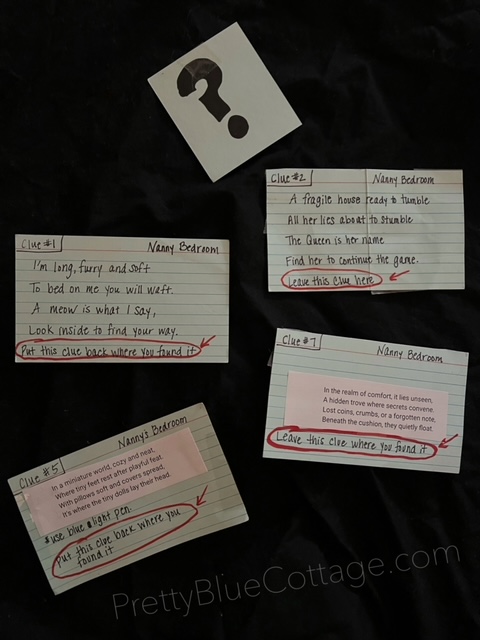 ?
Clue #2
Nanny Bedroom
A fragile house ready to tumble
All her lies about to stumble
The Queen is her name
Find her to continue the game.
Leave this clue here
Clue #1
Nanny Bedroom
I'm long, furry and soft
To bed on me you will waft.
A meow is what I say,
Look inside to find your way.
Put this clue back where you found it
Clue #7
Nanny Bedroom
In the realm of comfort, it lies unseen,
A hidden trove where secrets convene.
Lost coins, crumbs, or a forgotten note,
Beneath the cushion, they quietly float.
Leave this clue where you found it
Clue #5
Nanny's Bedroom
In a miniature world, cozy and neat,
Where tiny feet rest after playful feat.
With pillows soft and covers spread,
It's where the tiny dolls lay their head.
*use blue light pen.
Put this clue back where you
found it
PrettyBlueCottage.com